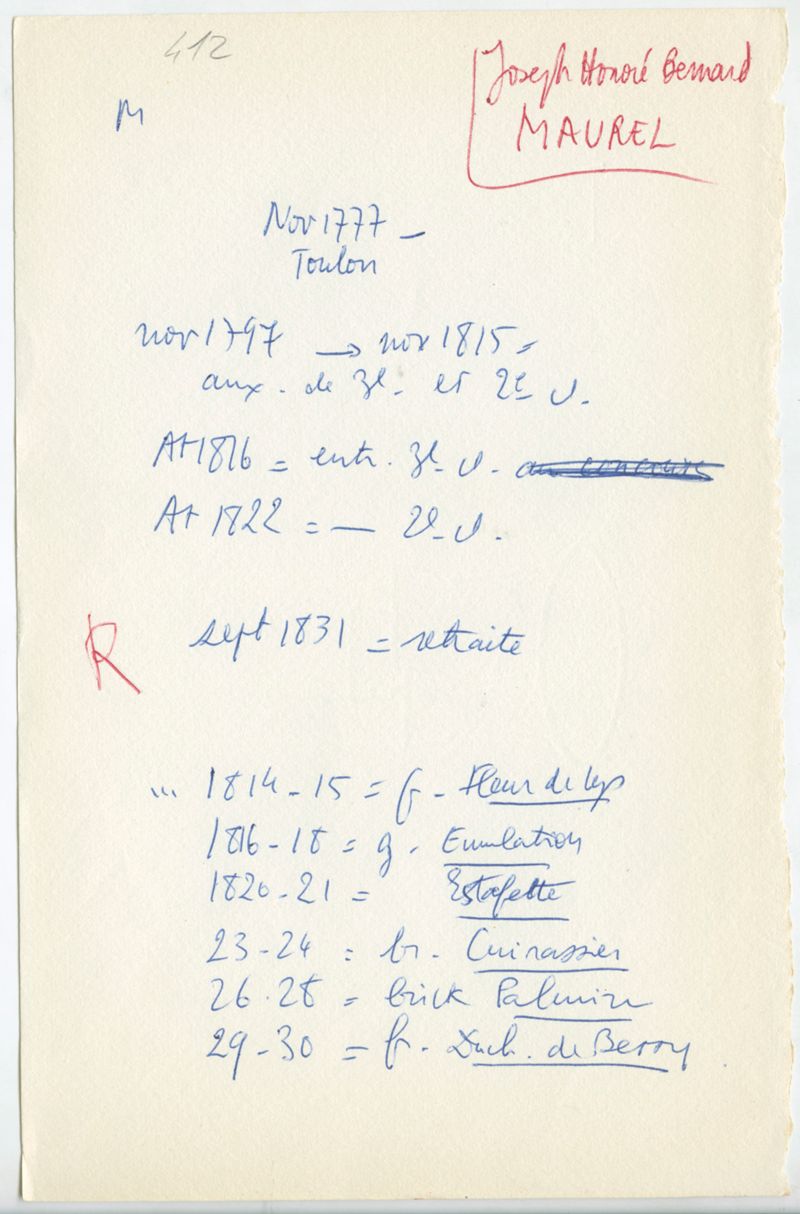 412
M
Joseph Honoré Bernard
MAUREL
Nov 1777 –
Toulon
nov 1797 → nov 1815 =
aux. de 3e. et 2e cl.
At 1816 = entr. 3e cl. au concours
At 1822 = — 2e cl.
R
sept 1831 = retraite
... 1814-15 = fr. Fleur de lys
1816-18 = g. Emulation
1820-21 = Estafette
23-24 = br. Cuirassier
26-28 = brick Palinure
29-30 = fr. Duch. de Berry